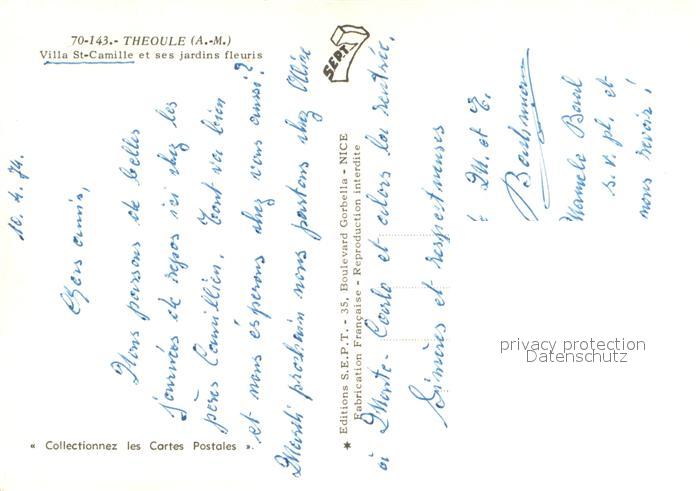 70-143.- THEOULE (A.-M.)
Villa St-Camille et ses jardins fleuris
SEPT 7
10.4.74.
Chers amis,
Nous passons de belles
journées de repos ici chez les
pères Camilliens. Tout va bien
et nous espérons chez vous aussi?
Mardi prochain nous partons chez Aline
à Monte-Carlo et alors la rentrée.
Sincères et respectueuses
à M. et E.
s. v. pl. et
nous revoir!
★ Editions S.E.P.T. - 35, Boulevard Gorbella - NICE
Fabrication Française - Reproduction interdite
« Collectionnez les Cartes Postales ».
privacy protection
Datenschutz